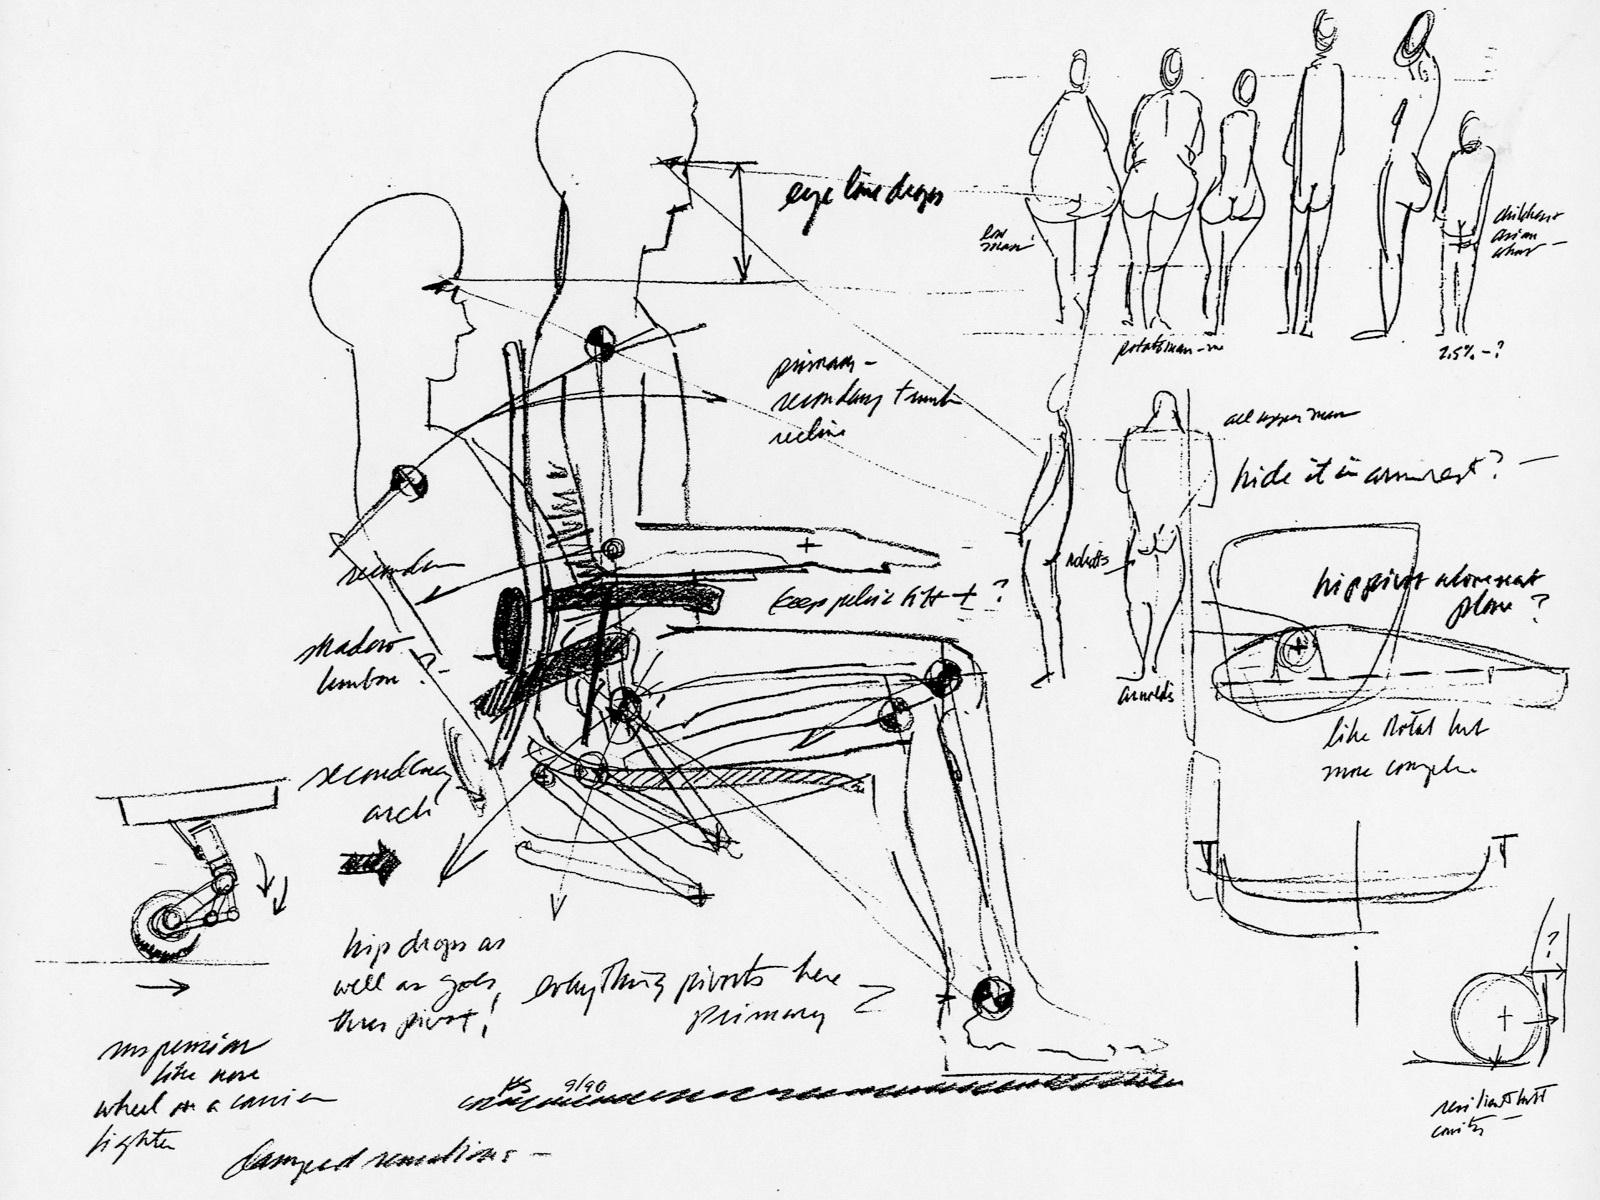 eye line drops
low
man
children
asian
2.5% - ?
primary -
secondary trunk
recline
all upper man
hide it in armrest? -
secondary
robots
keep pelvic tilt + ?
hip pivot above seat
plane ?
shadow
lumbar ?
arnolds
like Rotal but
more comple
secondary
arch
?
hip drops as
well as goes
thru pivot!
everything pivots here
primary
suspension
like nose
wheel on a carrier
fighter
9/90
damped
resilient butt
cavity -